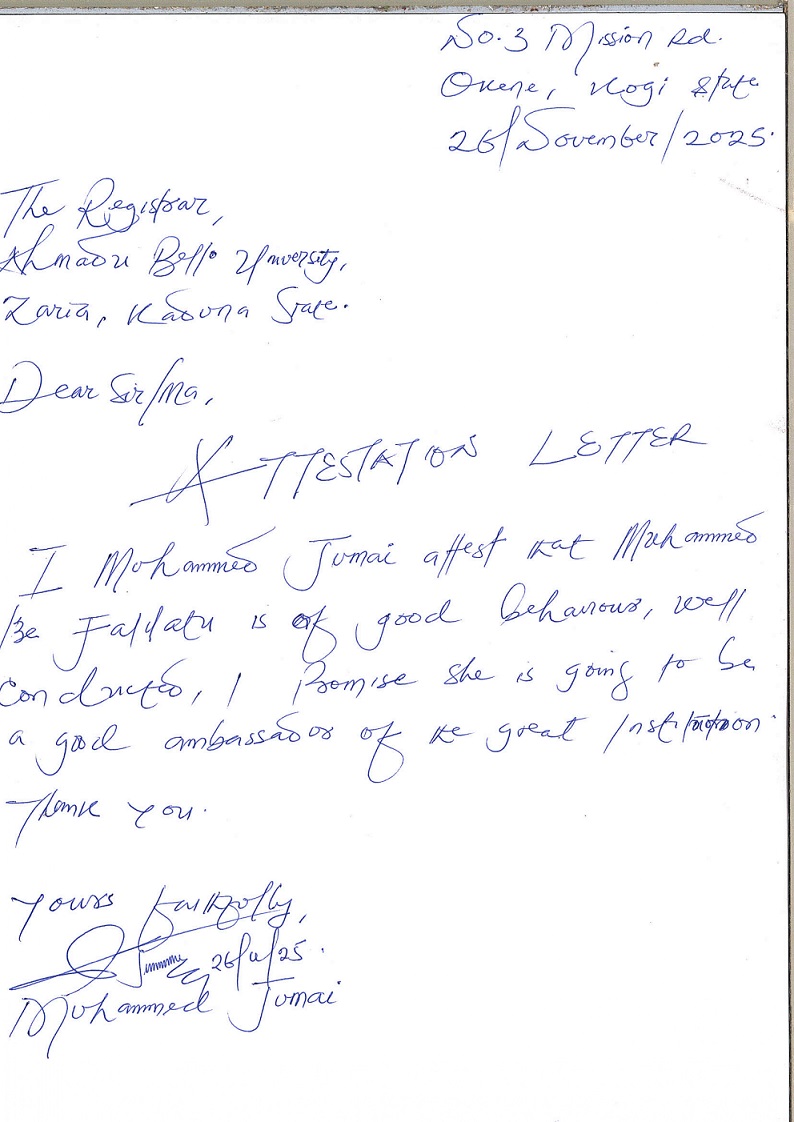 No. 3 Mission Rd.
Okene, Kogi State
26/November/2025.
The Registrar,
Ahmadu Bello University,
Zaria, Kaduna State.
Dear Sir/Ma,
ATTESTATION LETTER
I Mohammed Jumai attest that Muhammed
Be Faldatu is of good behaviour, well
conducted, I Promise she is going to be
a good ambassador of the great Institution.
Thank you.
Yours faithfully,
26/11/25.
Mohammed Jumai